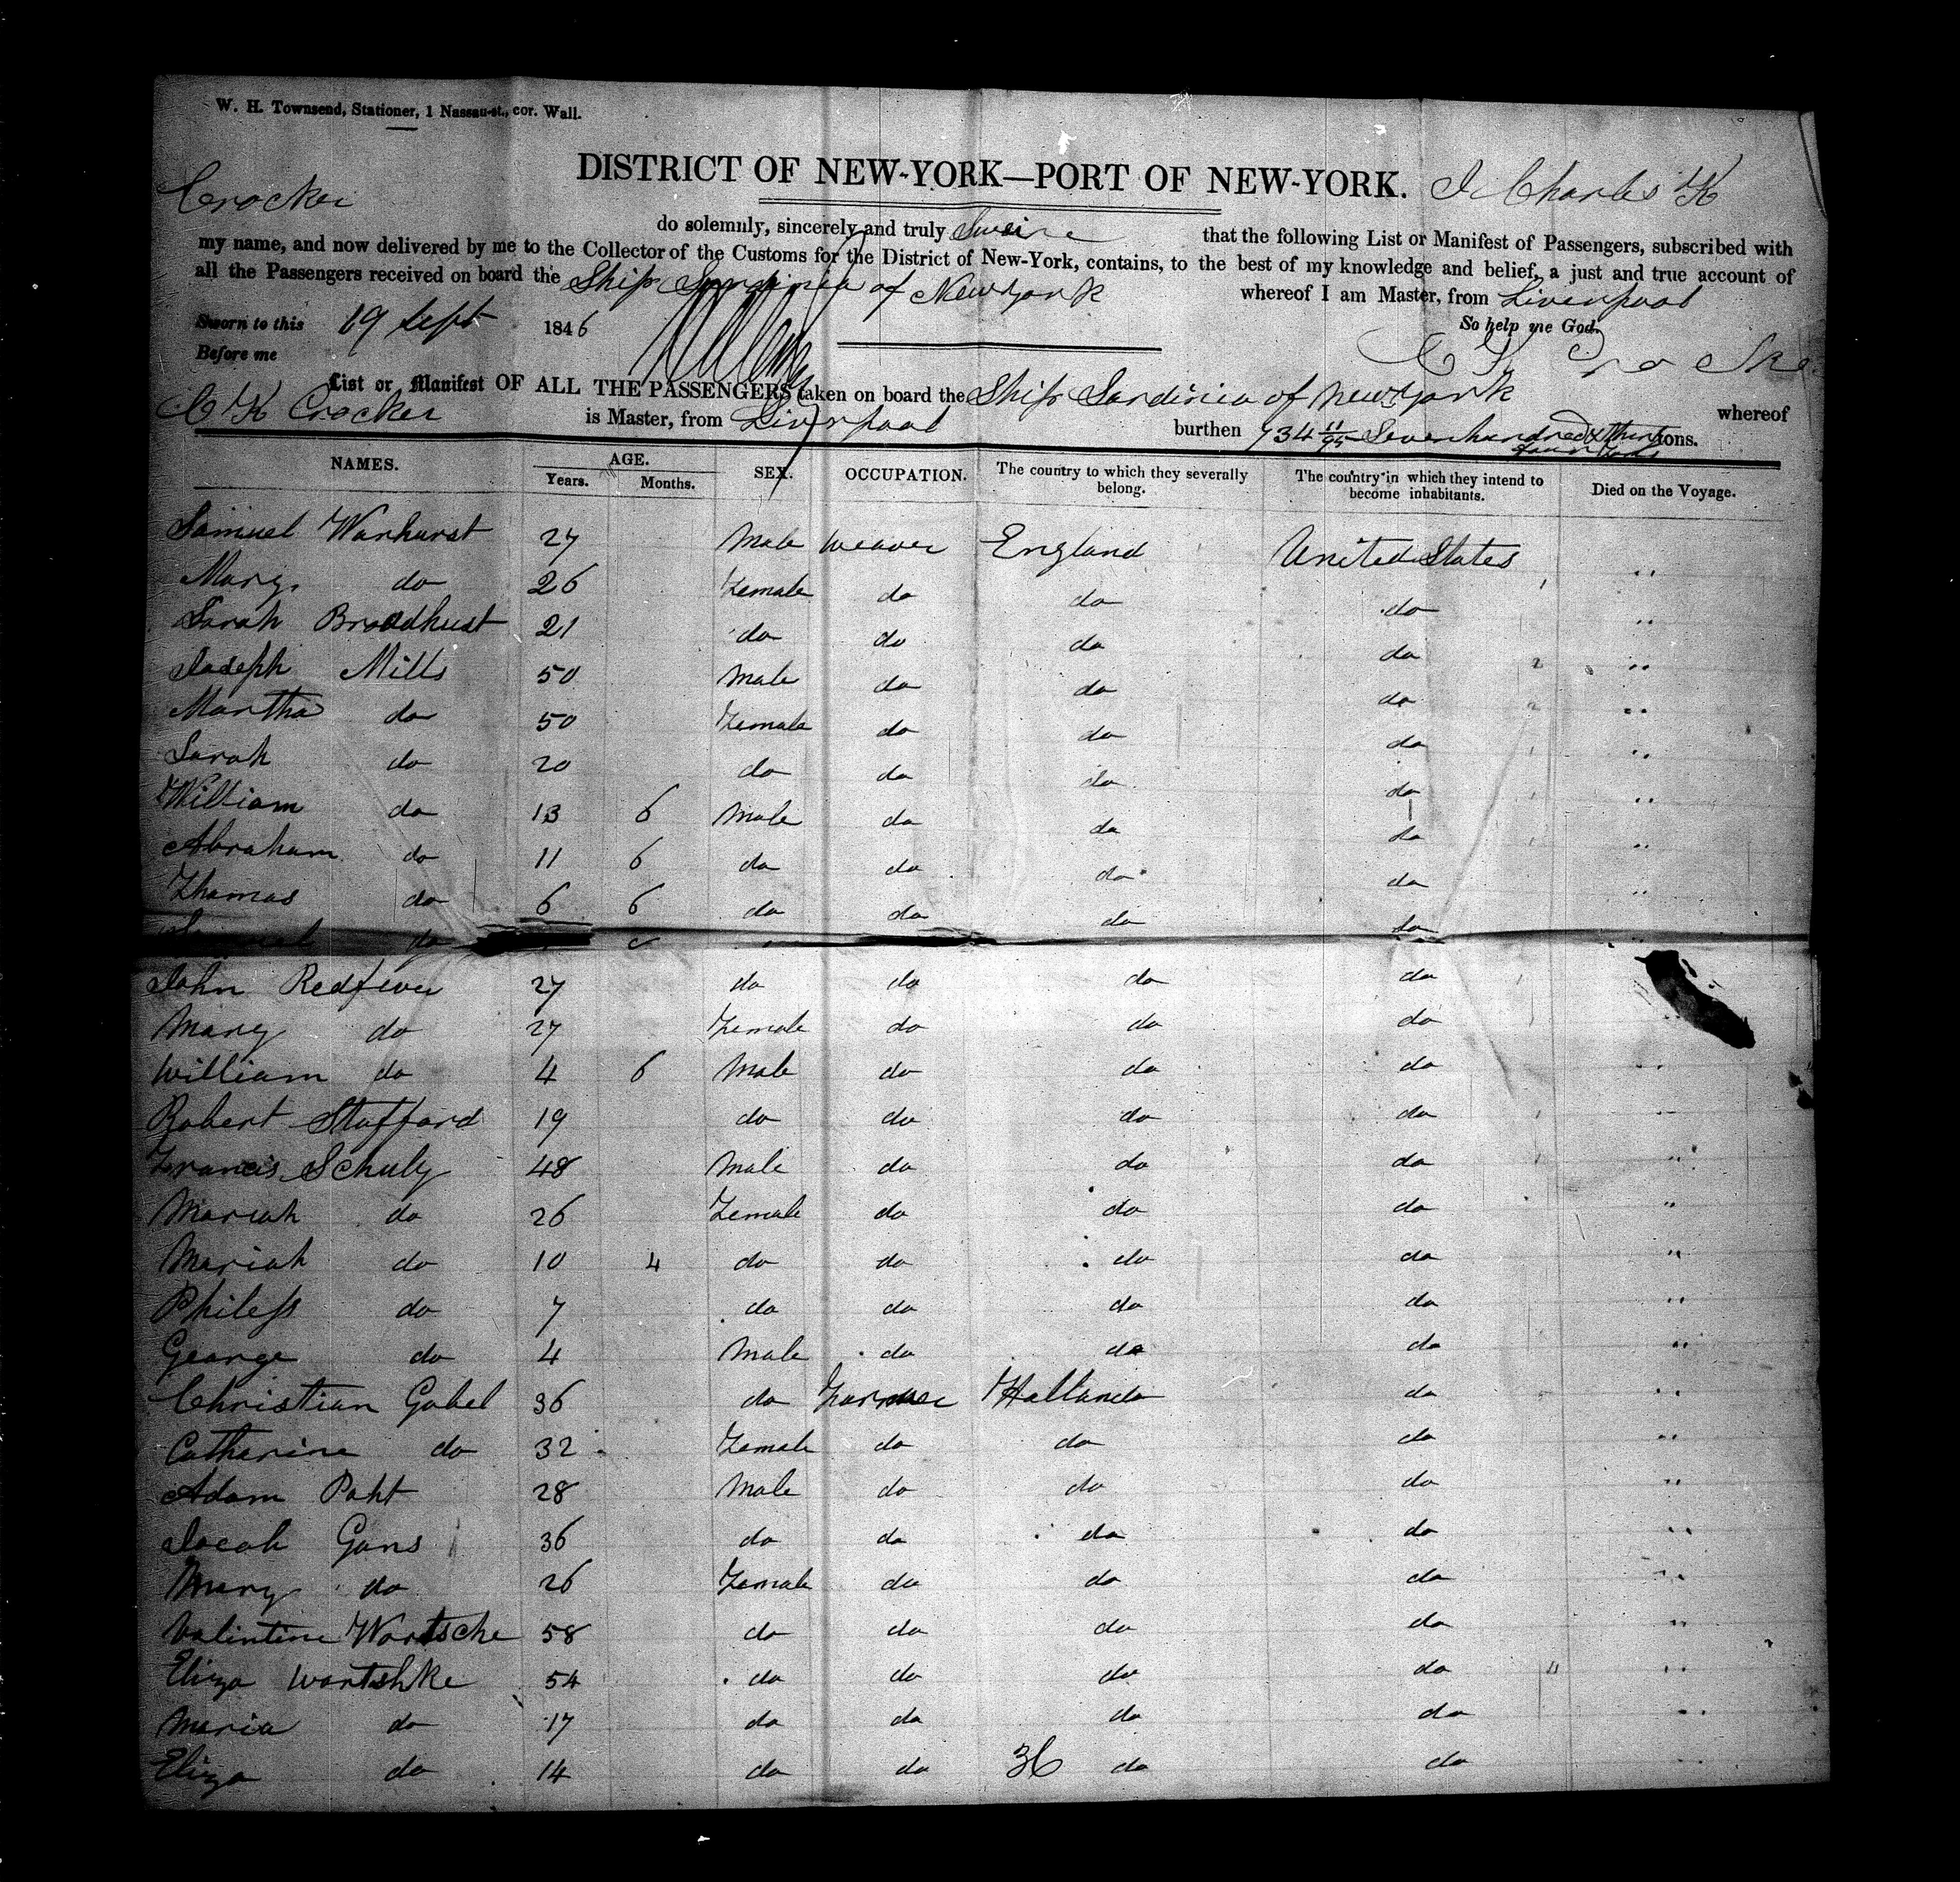 W. H. Townsend, Stationer, 1 Nassau-st., cor. Wall.
DISTRICT OF NEW-YORK—PORT OF NEW-YORK. I Charles K
Crocker do solemnly, sincerely and truly that the following List or Manifest of Passengers, subscribed with
my name, and now delivered by me to the Collector of the Customs for the District of New-York, contains, to the best of my knowledge and belief, a just and true account of
all the Passengers received on board the Ship Sardinia of New York whereof I am Master, from Liverpool
Sworn to this 19 Sept 1846 So help me God.
Before me
List or Manifest OF ALL THE PASSENGERS taken on board the Ship Sardinia of New York whereof
C K Crocker is Master, from Liverpool burthen 734 11/95 Seven hundred & Thirty tons.
NAMES. AGE. SEX. OCCUPATION. The country to which they severally belong. The country in which they intend to become inhabitants. Died on the Voyage.
Years. Months.
Samuel Warhurst 27 Male Weaver England United States ..
Mary do 26 Female do do do ..
Sarah Broadhust 21 do do do do ..
Joseph Mills 50 Male do do do ..
Martha do 50 Female do do do ..
Sarah do 20 do do do do ..
William do 13 6 Male do do do ..
Abraham do 11 6 do do do do ..
Thomas do 6 6 do do do do
do
John Redfever 27 do do do do
Mary do 27 Female do do do
William do 4 6 Male do do do ..
Robert Stafford 19 do do do do ..
Francis Schulz 48 Male do do do "
Mariah do 26 Female do do do "
Mariah do 10 4 do do do do "
do 7 do do do do "
George do 4 Male do do do "
Christian Gabel 36 do Farmer Holland do ..
Catharine do 32 Female do do do ..
Adam Paht 28 Male do do do ..
Jacob Gans 36 do do do do ..
Mary do 26 Female do do do ..
Valintine Wortsche 58 do do do do "
Eliza Wortshke 54 do do do do ..
Maria do 17 do do do do ..
Eliza do 14 do do 36 do do ..